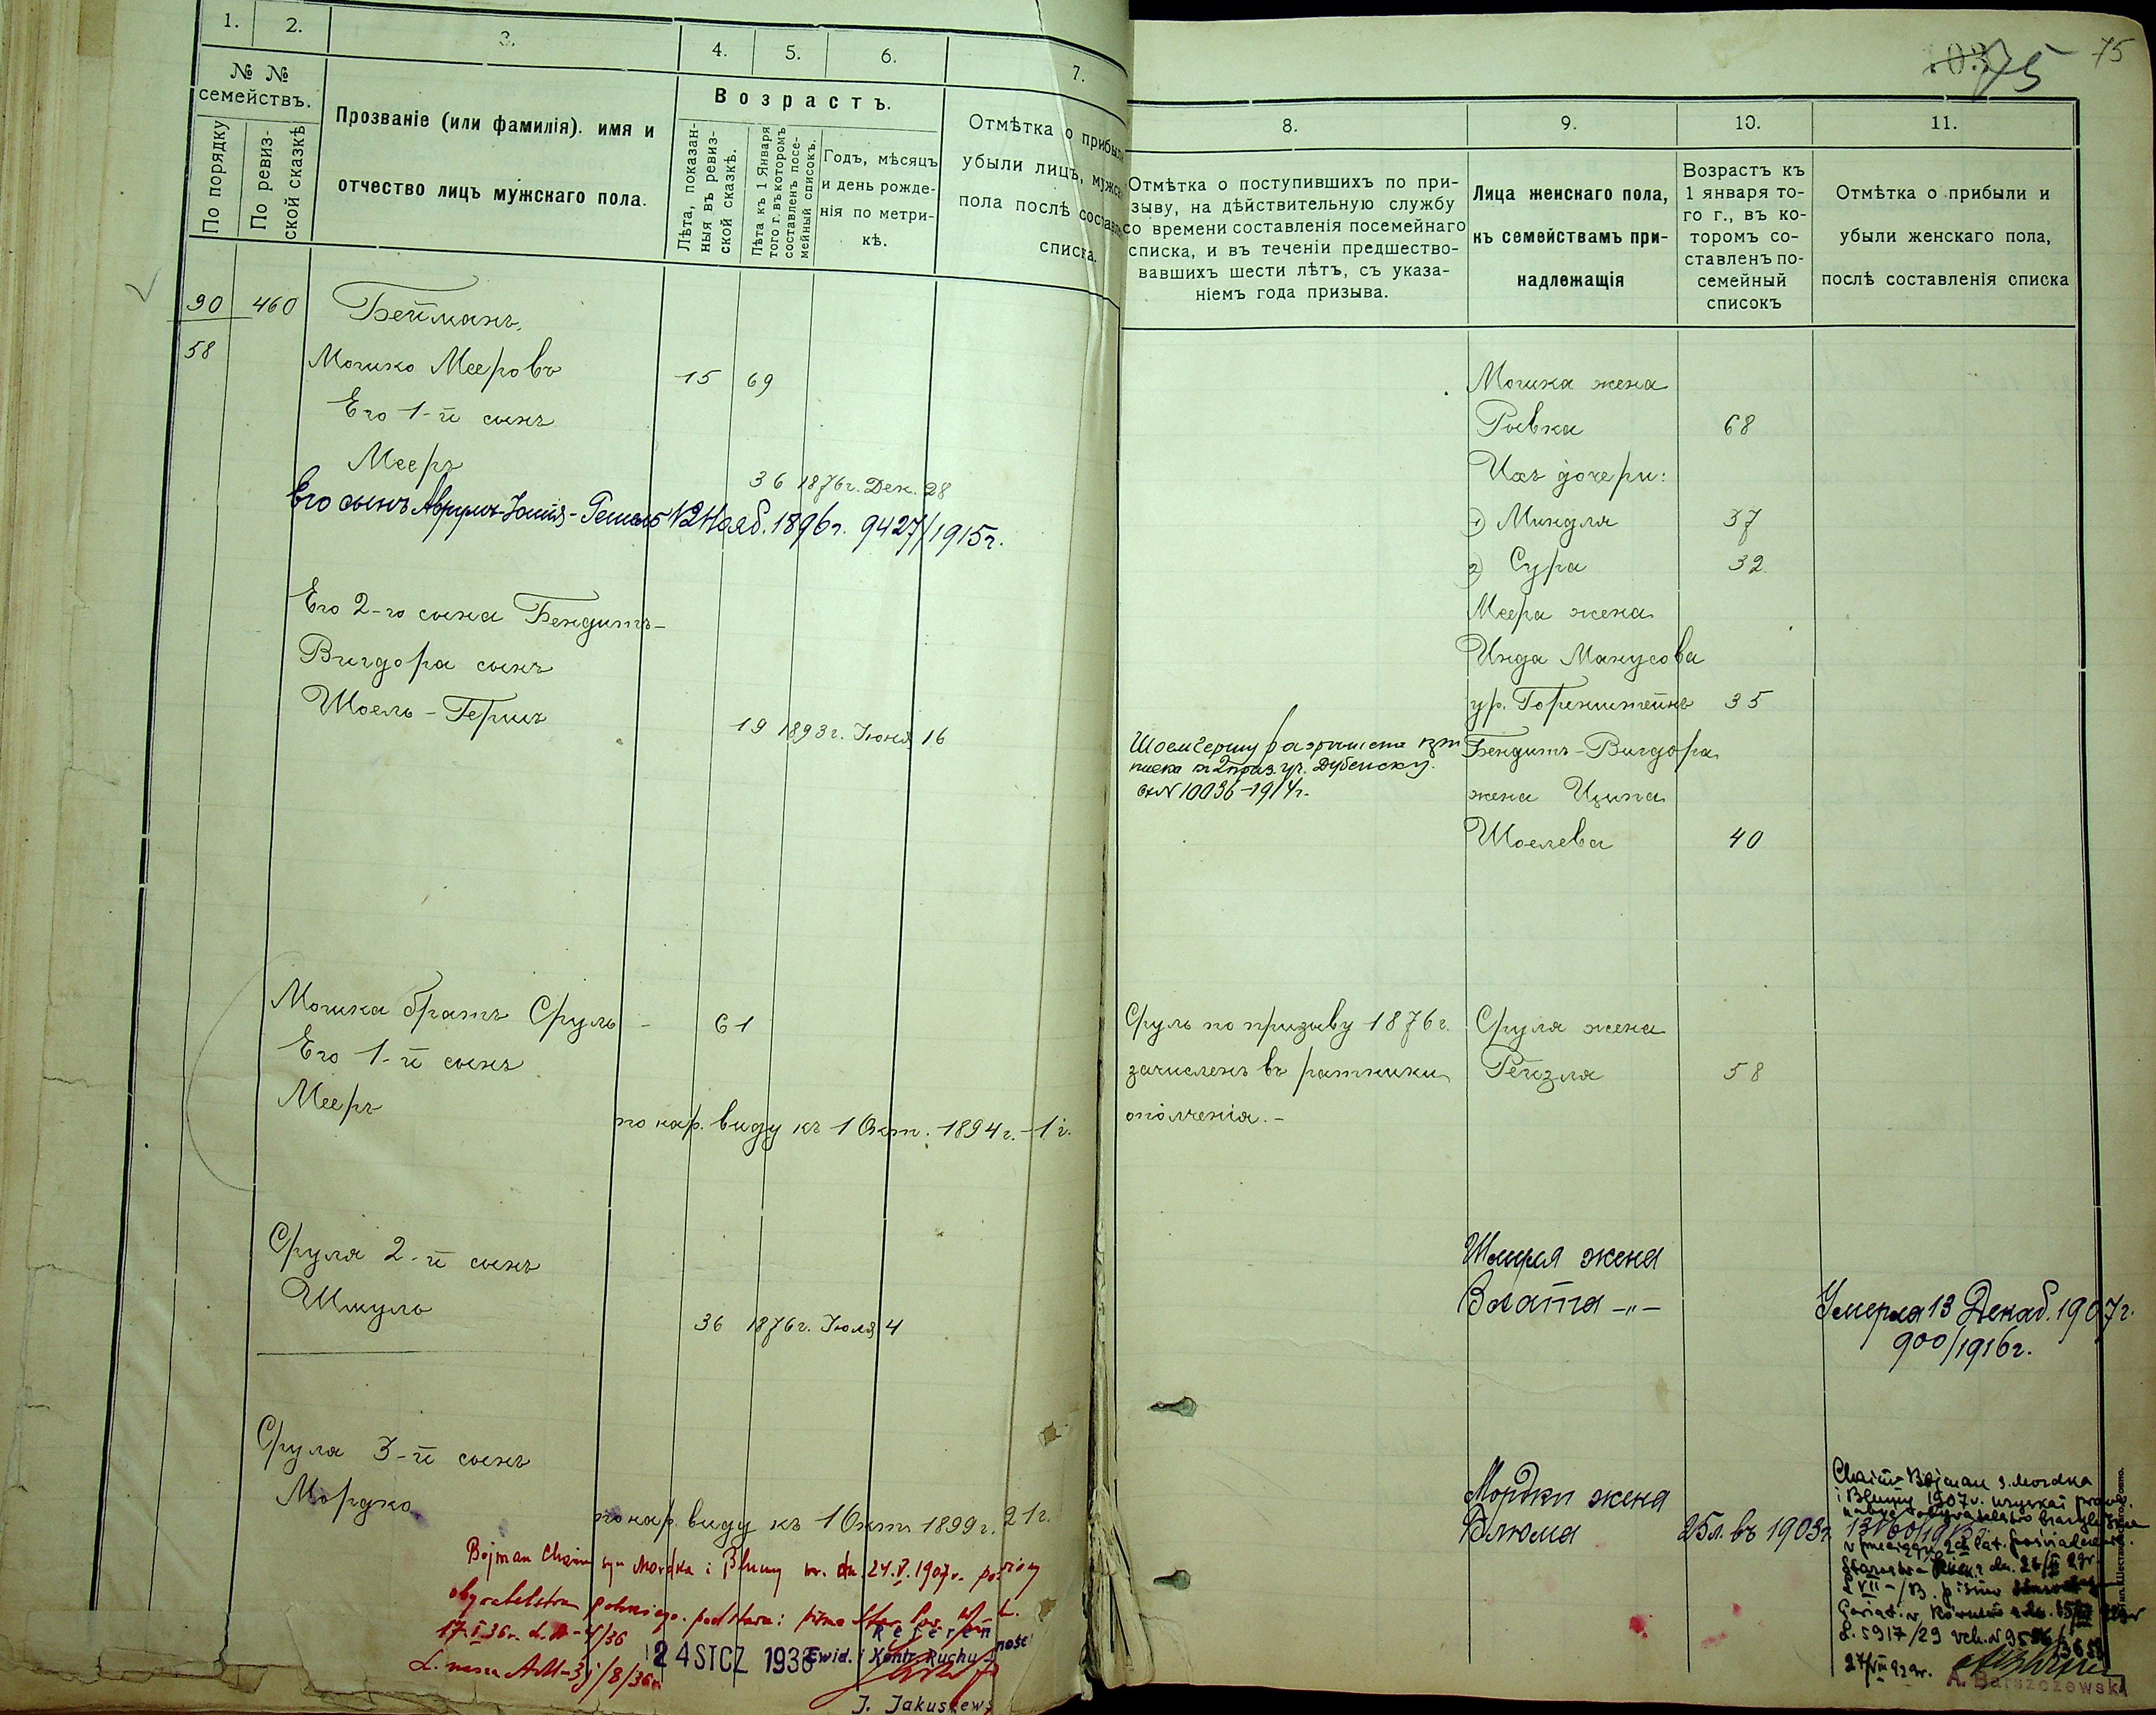 1. 2. 3. 4. 5. 6. 7.
№ №
семействъ.
По порядку
По ревиз-
ской сказкѣ
Прозваніе (или фамилія). имя и
отчество лицъ мужскаго пола.
Возрастъ.
Лѣта, показан-
ныя въ ревиз-
ской сказкѣ.
Лѣта къ 1 Января
того г. въ которомъ
составленъ посе-
мейный списокъ.
Годъ, мѣсяцъ
и день рожде-
нія по метри-
кѣ.
Отмѣтка о прибыли
убыли лицъ, мужск
пола послѣ составл
списка.
90 460 Бейманъ
58
Мошко Мееровъ 15 69
Его 1-й сынъ
Мееръ
36 1876 г. Дек. 28
Его сынъ Аврумъ- 12 Нояб. 1896 г. 9427/1915 г.
Его 2-го сына Бендитъ-
Вигдора сынъ
Шоель-Гершъ
19 1893 г. Іюня 16
Мошка братъ Сруль - 61
Его 1-й сынъ
Мееръ
по нар. виду къ 1 Окт. 1894 г. - 1 г.
Сруля 2-й сынъ
Шмуль
36 1876 г. Іюля 4
Сруля 3-й сынъ
Мордко
по нар. виду къ 1 Окт. 1899 г. 21 г.
Bojman Chaim syn Mordka i Blumy ur. dn. 24.V.1907 r.
obywatelstwo polskiego. podstawa: pismo
17.I.36 r.
L. nasza AM-3j/8/36 r.
24 STCZ 1936
Referent
Ewid. i Kontr. Ruchu
J. Jakuszews
75
75
8. 9. 10. 11.
Отмѣтка о поступившихъ по при-
зыву, на дѣйствительную службу
со времени составленія посемейнаго
списка, и въ теченіи предшество-
вавшихъ шести лѣтъ, съ указа-
ніемъ года призыва.
Лица женскаго пола,
къ семействамъ при-
надлежащія
Возрастъ къ
1 января то-
го г., въ ко-
торомъ со-
ставленъ по-
семейный
списокъ
Отмѣтка о прибыли и
убыли женскаго пола,
послѣ составленія списка
Мошка жена
Ривка 68
Ихъ дочери:
1) Миндля 37
2) Сура 32
Меера жена
Инда Манусова
ур. Горенштейнъ 35
Шоель Гершу разрѣшена
къ 2 приз. уч. Дубенску.
№ 10036-1914 г.
Бендитъ-Вигдора
жена Ципа
Шоелева 40
Сруль по призыву 1876 г.
зачисленъ въ ратники
ополченія.-
Сруля жена
Рейзля 58
Шмуля жена
Злата -"-
Умерла 13 Декаб. 1907 г.
900/1916 г.
Мордки жена
Блюма 25 л. въ 1903 г.
Chaim Bojman s. Mordka
i Blumy 1907 r. uzyskał prawo
L. 5917/29
27/VIII 929 r.
A. Barszczewski